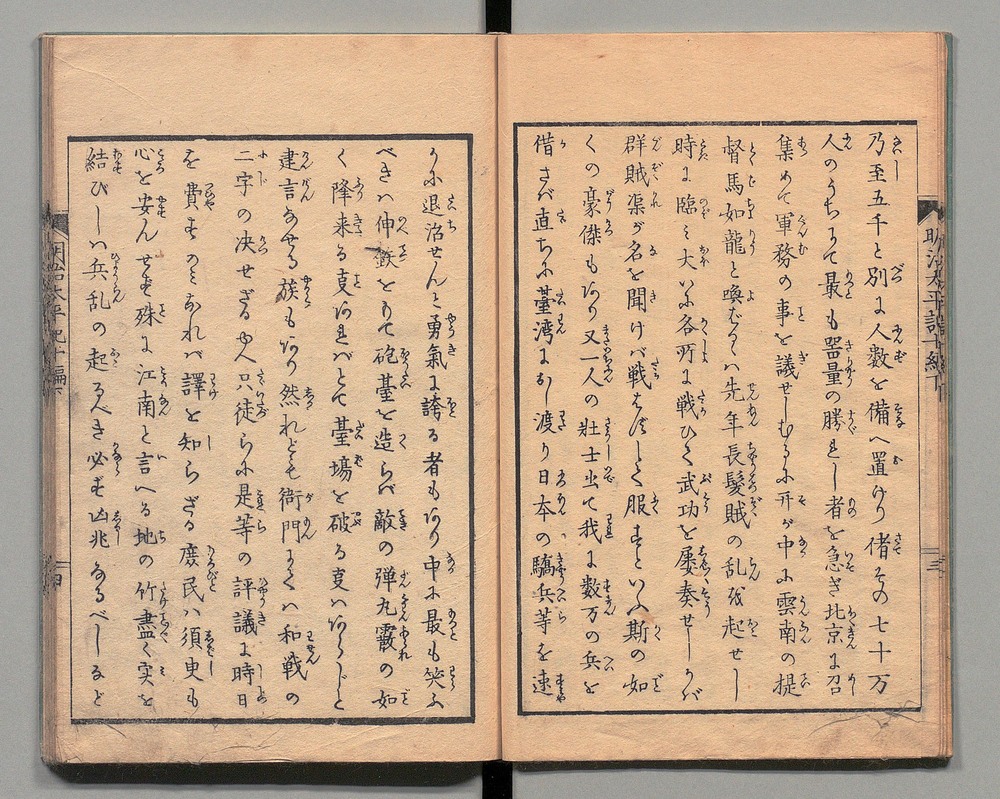 乃至五千と別に人数を備へ置けり偖その七十万
人のうちにて最も器量の勝れし者を急ぎ北京に召
集めて軍務の事を議せしむるに开が中に雲南の提
督馬如龍と喚なるハ先年長髪賊の乱を起せし
時に臨ミ大いに各所に戦ひて武功を屡奏せしかバ
群賊渠が名を聞けバ戦はずして服すといふ斯の如
くの豪傑もあり又一人の壮士出て我に数万の兵を
借さバ直ちに臺湾におし渡り日本の驕兵等を速
かに退治せんと勇氣に誇る者もあり中に最も笑ふ
べきハ伸鉄をもて砲臺を造らバ敵の弾丸霰の如
く降来る支あれバとて臺場を破る支ハあらじと
建言なせる族もあり然れども衙門にてハ和戦の
二字の决せざる由只徒らに是等の評議に時日
を費すのミあれバ譯を知らざる庶民ハ須臾も
心を安んせず殊に江南と言へる地の竹盡く実を
結びしハ兵乱の起るべき必ず凶兆なるべしなど
明治太平記十編下
三
明治太平記十編下
四